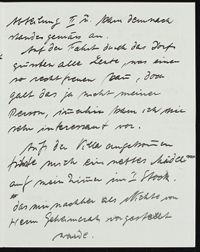 Abteilung II u. kam demnach
standesgemäss an.
Auf der Fahrt durch das Dorf
grüssten alle Leute, was einen
so recht freuen kann, doch
galt das ja nicht meiner
Person, immerhin kam ich mir
sehr interessant vor.
Auf der Villa angekommen
führte mich ein nettes Mädel
auf mein Zimmer im I. Stock
das mir nachher als Nichte von
Herrn Geheimrath vorgestellt
wurde.